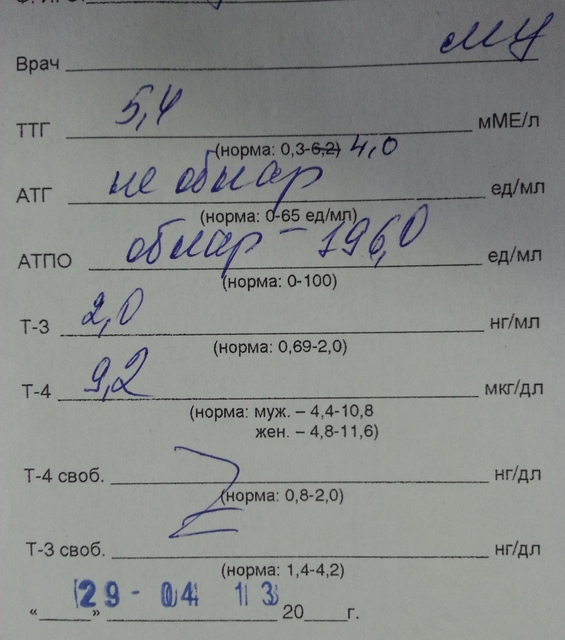 Врач
ТТГ 5,4 мМЕ/л
(норма: 0,3-6,2) 4,0
АТГ не обнар ед/мл
(норма: 0-65 ед/мл)
АТПО обнар – 196,0 ед/мл
(норма: 0-100)
Т-3 2,0 нг/мл
(норма: 0,69-2,0)
Т-4 9,2 мкг/дл
(норма: муж. – 4,4-10,8
жен. – 4,8-11,6)
Т-4 своб. нг/дл
(норма: 0,8-2,0)
Т-3 своб. нг/дл
(норма: 1,4-4,2)
29 - 04 13
« » 20 г.